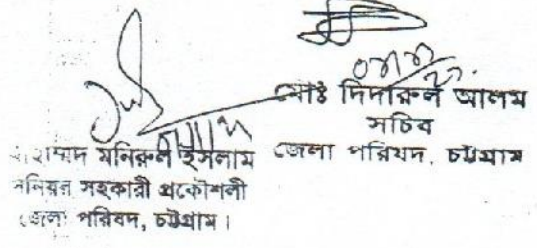 মোঃ দিদারুল আলম
সচিব
জেলা পরিষদ, চট্টগ্রাম
মনিরুল ইসলাম
সহকারী প্রকৌশলী
জেলা পরিষদ, চট্টগ্রাম।